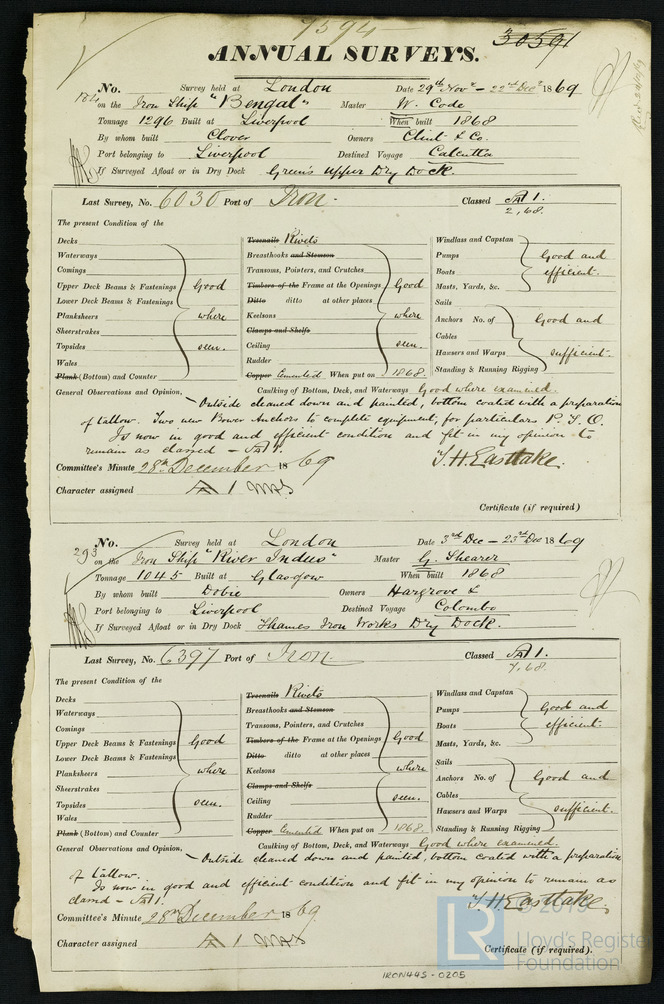 7594
30591
ANNUAL SURVEYS.
No. Survey held at London Date 29th Novr - 22nd Decr 1869
on the Iron Ship "Bengal" Master W. Code
Tonnage 1296 Built at Liverpool When built 1868
By whom built Clover Owners Clint & Co.
Port belonging to Liverpool Destined Voyage Calcutta
If Surveyed Afloat or in Dry Dock Green's Upper Dry Dock.
Last Survey, No. 6030 Port of Iron. Classed A 1.
2,68.
The present Condition of the
Decks
Waterways
Comings
Upper Deck Beams & Fastenings
Lower Deck Beams & Fastenings
Planksheers
Sheerstrakes
Topsides
Wales
Plank (Bottom) and Counter
Good
where
seen.
Treenails Rivets
Breasthooks and Stemson
Transoms, Pointers, and Crutches
Timbers of the Frame at the Openings
Ditto ditto at other places
Keelsons
Clamps and Shelfs
Ceiling
Rudder
Copper Cemented When put on 1868.
Good
where
seen.
Windlass and Capstan
Pumps
Boats
Masts, Yards, &c.
Good and
efficient.
Sails
Anchors No. of
Cables
Hawsers and Warps
Standing & Running Rigging
Good and
sufficient.
General Observations and Opinion, Caulking of Bottom, Deck, and Waterways Good where examined.
Outside cleaned down and painted, bottom coated with a preparation
of tallow. Two new Bower Anchors to complete equipment, for particulars P.T.O.
Is now in good and efficient condition and fit in my opinion to
remain as classed - A 1.
T.H. Eastlake.
Committee's Minute 28th December 1869
Character assigned A 1
Certificate (if required)
293
No. Survey held at London Date 3rd Dec - 23rd Dec 1869
on the Iron Ship "River Indus" Master G. Shearer
Tonnage 1045 Built at Glasgow When built 1868
By whom built Dobie Owners Hargrove &
Port belonging to Liverpool Destined Voyage Colombo
If Surveyed Afloat or in Dry Dock Thames Iron Works Dry Dock.
Last Survey, No. 6397 Port of Iron. Classed A 1.
7,68.
The present Condition of the
Decks
Waterways
Comings
Upper Deck Beams & Fastenings
Lower Deck Beams & Fastenings
Planksheers
Sheerstrakes
Topsides
Wales
Plank (Bottom) and Counter
Good
where
seen.
Treenails Rivets
Breasthooks and Stemson
Transoms, Pointers, and Crutches
Timbers of the Frame at the Openings
Ditto ditto at other places
Keelsons
Clamps and Shelfs
Ceiling
Rudder
Copper Cemented When put on 1868.
Good
where
seen.
Windlass and Capstan
Pumps
Boats
Masts, Yards, &c.
Good and
efficient.
Sails
Anchors No. of
Cables
Hawsers and Warps
Standing & Running Rigging
Good and
sufficient.
General Observations and Opinion, Caulking of Bottom, Deck, and Waterways Good where examined.
Outside cleaned down and painted, bottom coated with a preparation
of tallow.
Is now in good and efficient condition and fit in my opinion to remain as
classed - A 1.
T.H. Eastlake.
Committee's Minute 28th December 1869
Character assigned A 1
Certificate (if required).
IRON445-0205
LR
© 2019
Lloyd's Register
Foundation